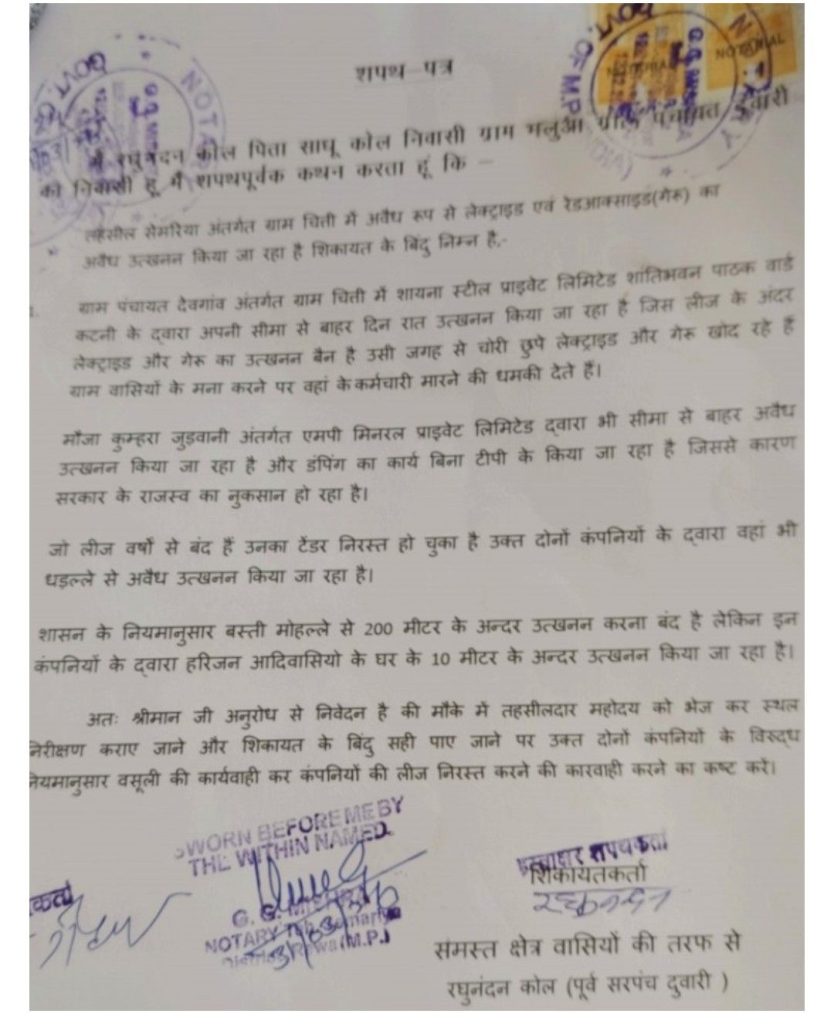 शपथ-पत्र
मैं रघुनंदन कोल पिता साधू कोल निवासी ग्राम भलुआ ग्राम पंचायत दुवारी
की निवासी हू मै शपथपूर्वक कथन करता हूं कि –
तहसील सेमरिया अंतर्गत ग्राम चिती में अवैध रूप से लेक्ट्राइड एवं रेडआक्साइड(गेरू) का
अवैध उत्खनन किया जा रहा है शिकायत के बिंदु निम्न है,-
ग्राम पंचायत देवगांव अंतर्गत ग्राम चिती में शायना स्टील प्राइवेट लिमिटेड शांतिभवन पाठक वार्ड
कटनी के द्वारा अपनी सीमा से बाहर दिन रात उत्खनन किया जा रहा है जिस लीज के अंदर
लेक्ट्राइड और गेरू का उत्खनन बैन है उसी जगह से चोरी छुपे लेक्ट्राइड और गेरू खोद रहे हैं
ग्राम वासियों के मना करने पर वहां के कर्मचारी मारने की धमकी देते हैं।
मौजा कुम्हरा जुडवानी अंतर्गत एमपी मिनरल प्राइवेट लिमिटेड द्वारा भी सीमा से बाहर अवैध
उत्खनन किया जा रहा है और डंपिंग का कार्य बिना टीपी के किया जा रहा है जिससे कारण
सरकार के राजस्व का नुकसान हो रहा है।
जो लीज वर्षो से बंद हैं उनका टेंडर निरस्त हो चुका है उक्त दोनों कंपनियों के द्वारा वहां भी
धड़ल्ले से अवैध उत्खनन किया जा रहा है।
शासन के नियमानुसार बस्ती मोहल्ले से 200 मीटर के अन्दर उत्खनन करना बंद है लेकिन इन
कंपनियों के द्वारा हरिजन आदिवासियो के घर के 10 मीटर के अन्दर उत्खनन किया जा रहा है।
अतः श्रीमान जी अनुरोध से निवेदन है की मौके में तहसीलदार महोदय को भेज कर स्थल
निरीक्षण कराए जाने और शिकायत के बिंदु सही पाए जाने पर उक्त दोनों कंपनियों के विरुद्ध
नियमानुसार वसूली की कार्यवाही कर कंपनियों की लीज निरस्त करने की कारवाही करने का कष्ट करे।
SWORN BEFORE ME BY
THE WITHIN NAMED
G. G. MISHRA
NOTARY Teh. Semariya
District Rewa (M.P.)
हस्ताक्षर शपथकर्ता
शिकायतकर्ता
रघुनन्दन
संमस्त क्षेत्र वासियों की तरफ से
रघुनंदन कोल (पूर्व सरपंच दुवारी )